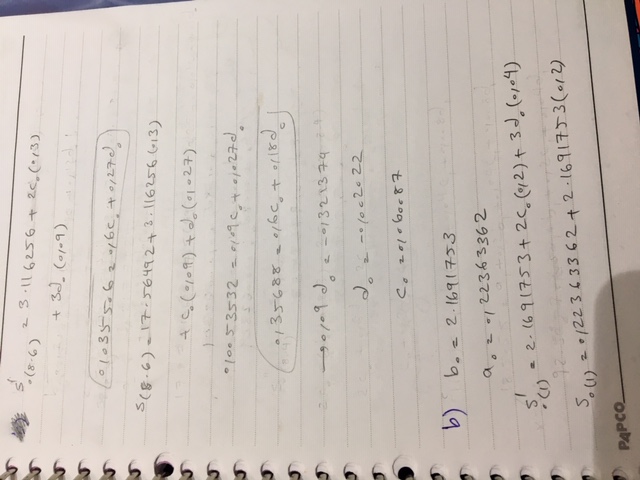 s'₀(8.6) = 3.116256 + 2c₀(0,3)
+ 3d₀(0,09)
0,035506 = 0,6c₀ + 0,27d₀
s(8.6) = 17.56492 + 3.116256(0,3)
+ c₀(0,09) + d₀(0,027)
0,0053532 = 0,09c₀ + 0,027d₀
0,35688 = 0,6c₀ + 0,18d₀
→ 0,09 d₀ = -0,321374
d₀ = -0,002022
c₀ = 0,060087
b) b₀ = 2.1691753
a₀ = 0,22363362
s'₀(1) = 2.1691753 + 2c₀(0,2) + 3d₀(0,04)
s₀(1) = 0,22363362 + 2.1691753(0,2)
PAPCO